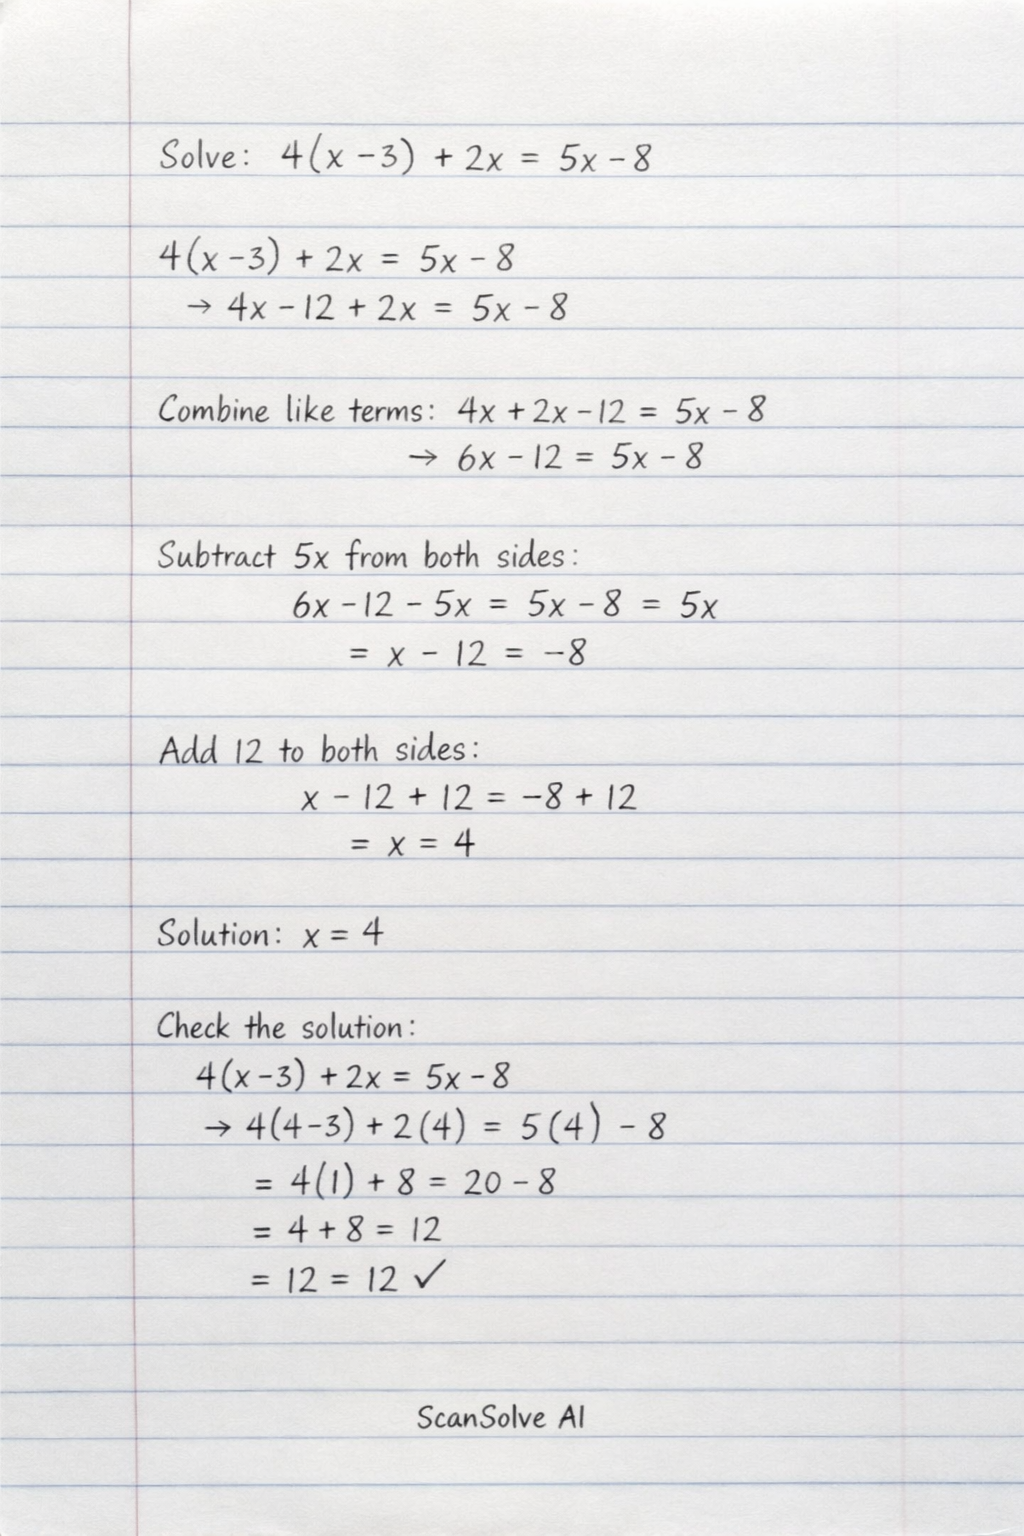 Solve: 4(x - 3) + 2x = 5x - 8
4(x - 3) + 2x = 5x - 8
→ 4x - 12 + 2x = 5x - 8
Combine like terms: 4x + 2x - 12 = 5x - 8
→ 6x - 12 = 5x - 8
Subtract 5x from both sides:
6x - 12 - 5x = 5x - 8 = 5x
= x - 12 = -8
Add 12 to both sides:
x - 12 + 12 = -8 + 12
= x = 4
Solution: x = 4
Check the solution:
4(x - 3) + 2x = 5x - 8
→ 4(4 - 3) + 2(4) = 5(4) - 8
= 4(1) + 8 = 20 - 8
= 4 + 8 = 12
= 12 = 12 ✓
ScanSolve AI